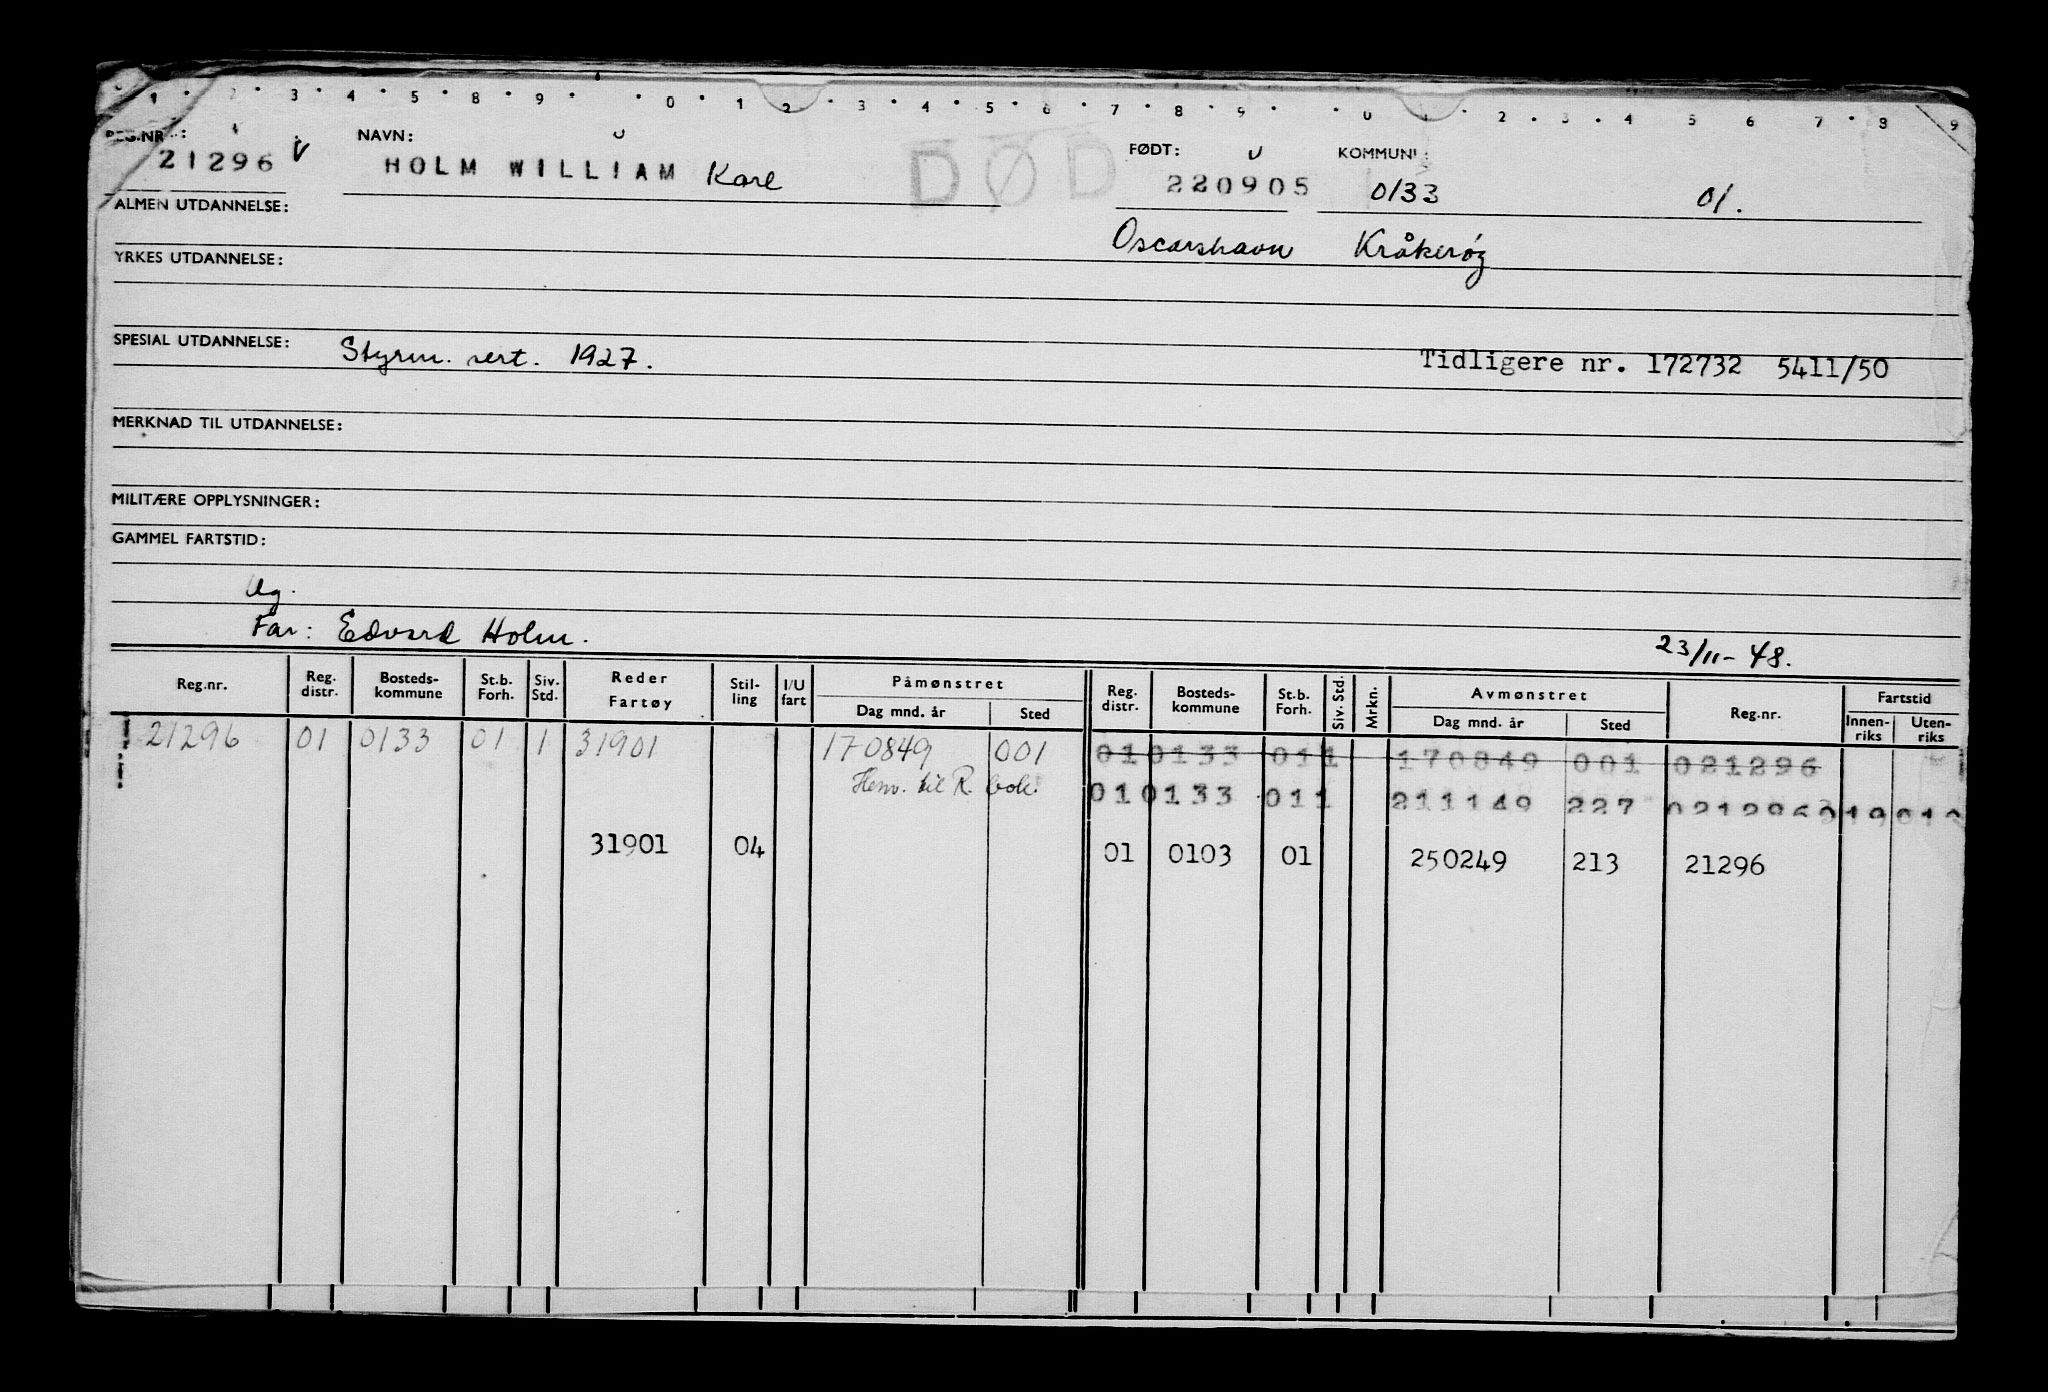 1 2 3 4 5 8 9 0 1 2 3 4 5 6 7 8 9 0 1 2 3 4 5 6 7 8 9
REG.NR.: NAVN: FØDT: KOMMUNE:
21296 V HOLM WILLIAM Kare DØD 220905 0133 01.
ALMEN UTDANNELSE:
Oscarshavn Kråkerøy
YRKES UTDANNELSE:
SPESIAL UTDANNELSE: Styrm. sert. 1927. Tidligere nr. 172732 5411/50
MERKNAD TIL UTDANNELSE:
MILITÆRE OPPLYSNINGER:
GAMMEL FARTSTID:
Ug.
Far: Edvard Holm. 23/11-48.
Reg.nr. Reg. distr. Bosteds-kommune St.b. Forh. Siv. Std. Reder Fartøy Stil-ling I/U fart Påmønstret Dag mnd. år Sted Reg. distr. Bosteds-kommune St.b. Forh. Siv. Std. Mrkn. Avmønstret Dag mnd. år Sted Reg.nr. Fartstid Innen-riks Uten-riks
21296 01 0133 01 1 31901 170849 001 01 0133 01 1 170849 001 021296
Henv. til R. bok. 01 0133 01 1 211149 227 021296 019 010
31901 04 01 0103 01 250249 213 21296